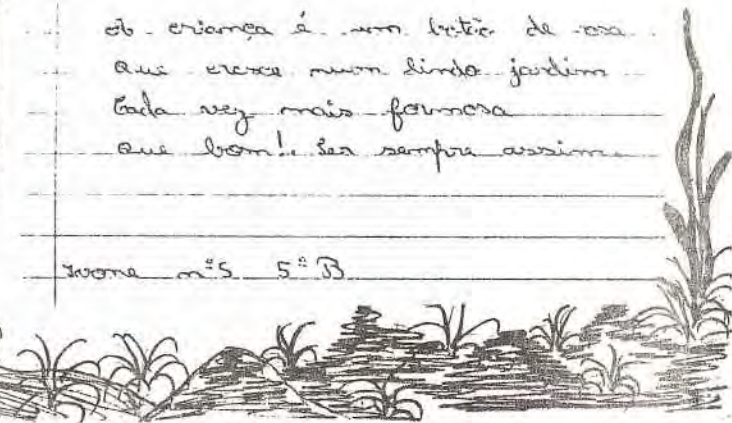 A criança é um botão de rosa
Que cresce num lindo jardim
Cada vez mais formosa
Que bom! Ser sempre assim
Ivone nº5 5º B